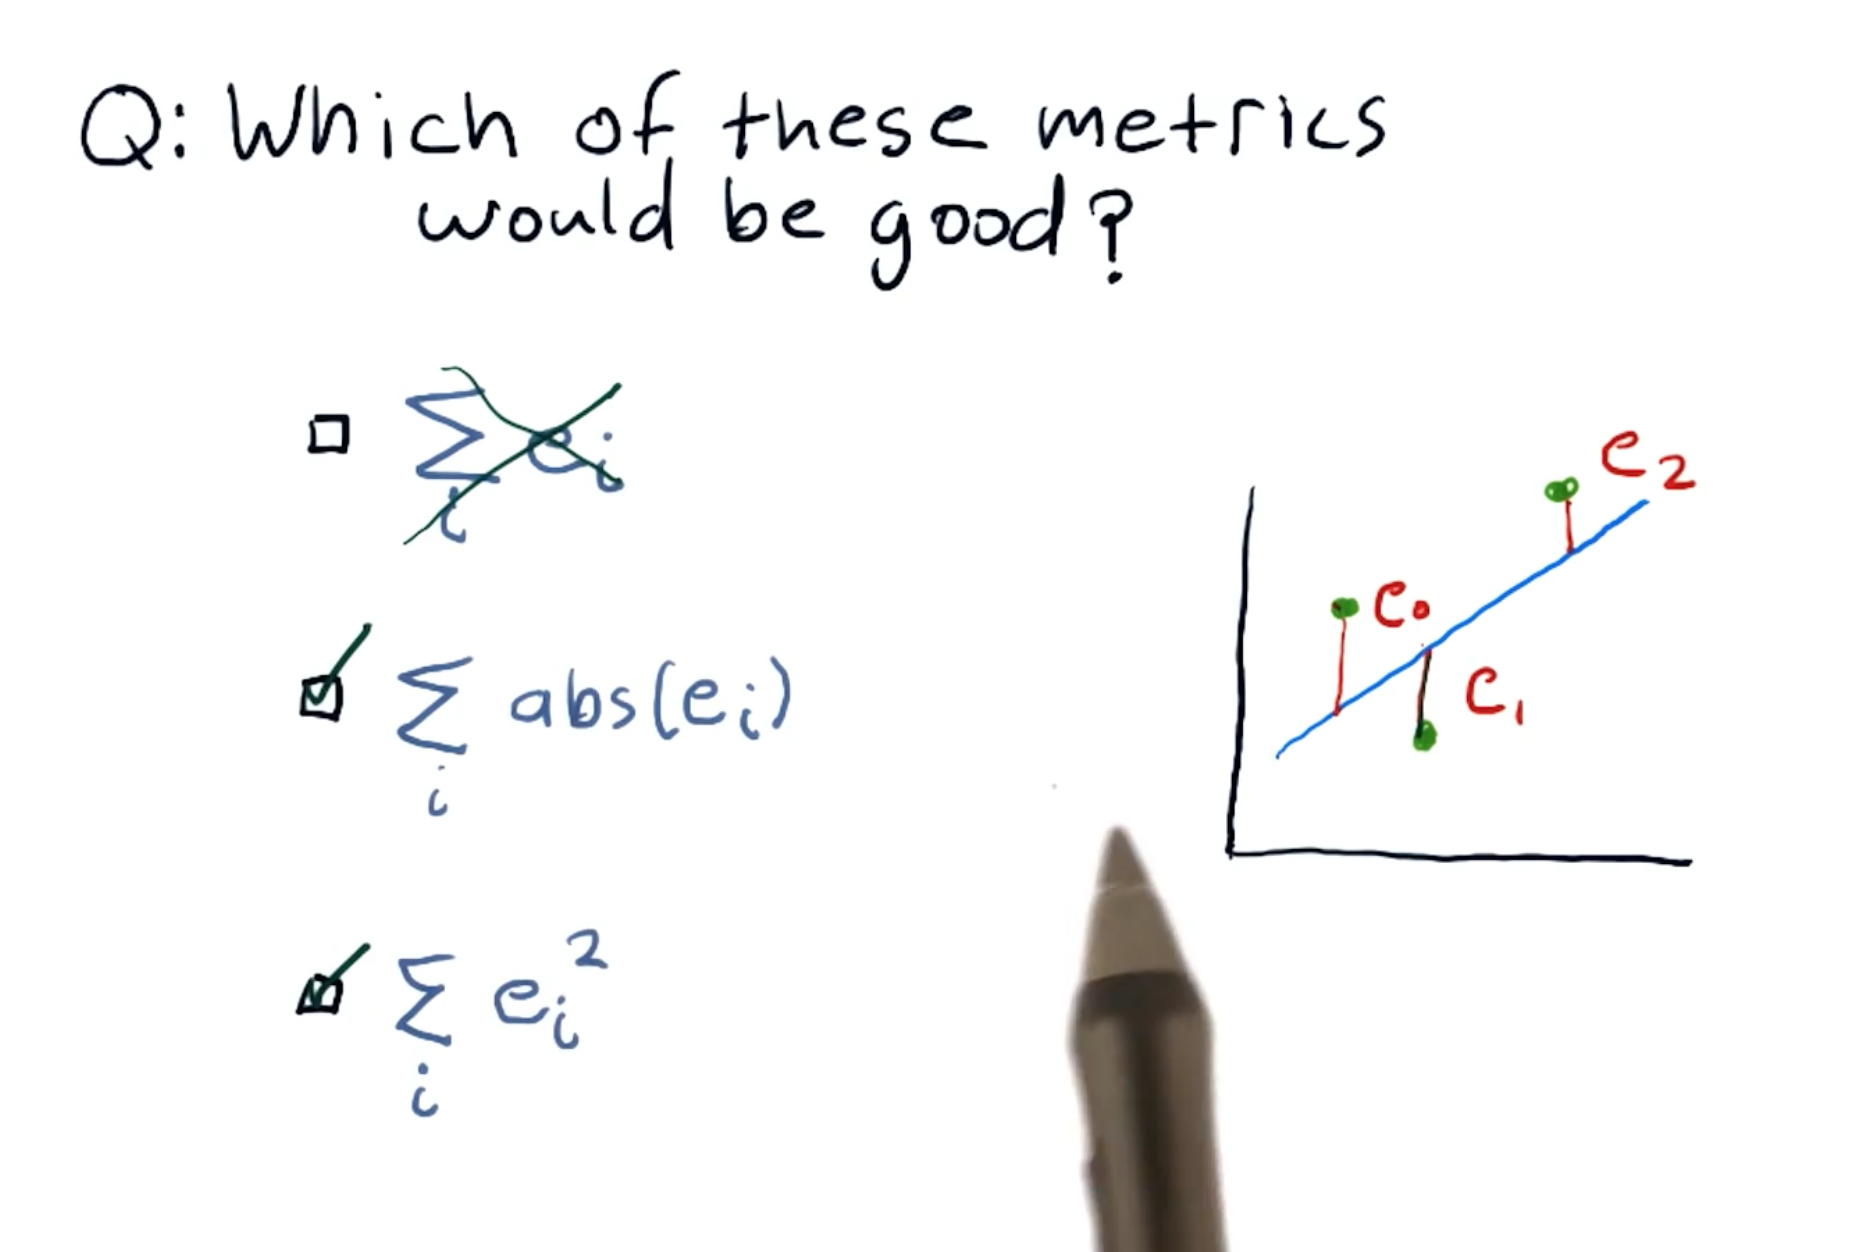 Q: Which of these metrics
would be good?
∑ eᵢ
i
∑ abs(eᵢ)
i
∑ eᵢ²
i
e₂
e₀
e₁